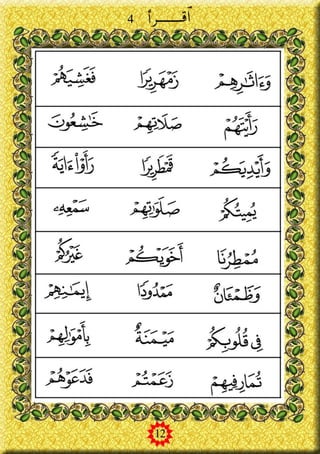 اَقـــرأ 4
وَءَاثَٰرِهِمْ زَمْهَرِيرًا فَغَشِيَهُمْ
رَأَيْتَهُمْ صَلَاتِهِمْ خَٰشِعُونَ
وَأَيْدِيَكُمْ قَمْطَرِيرًا رَأَوْا۟ ءَايَةً
يُمِيتُكُمْ صَلَوَٰتِهِمْ سَمْعِهِۦ
مُمْطِرُنَا أَخَوَيْكُمْ غَيْرُكُمْ
مَمْدُودًا إِيمَٰنِهِمْ
فِى قُلُوبِكُمْ مَيْمَنَةٌ بِأَمْوَٰلِهِمْ
تُمَارِفِيهِمْ زَعَمْتُمْ فَدَعَوْهُمْ
12